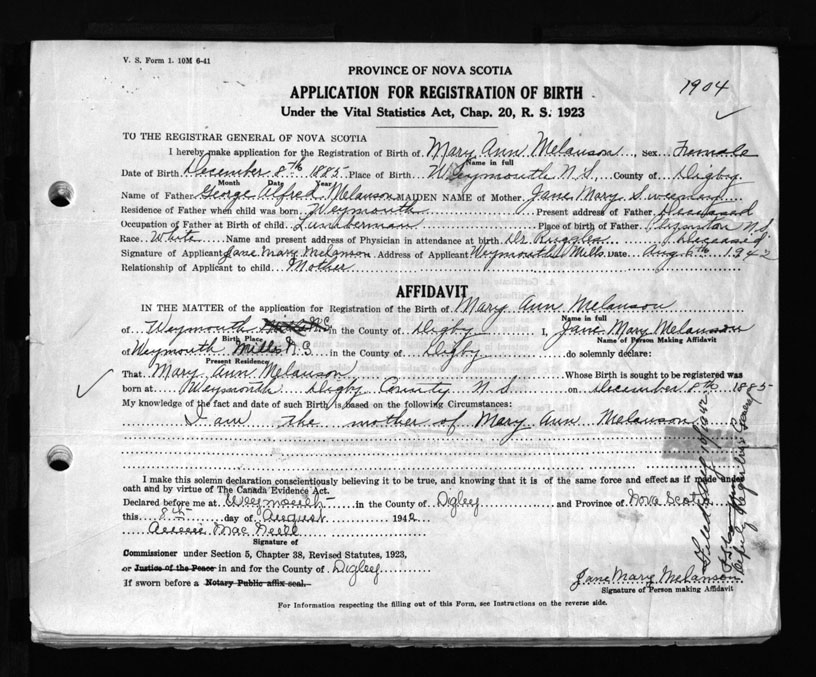 V. S. Form 1. 10M 6-41
PROVINCE OF NOVA SCOTIA
1904
APPLICATION FOR REGISTRATION OF BIRTH
Under the Vital Statistics Act, Chap. 20, R. S. 1923
TO THE REGISTRAR GENERAL OF NOVA SCOTIA
I hereby make application for the Registration of Birth of Mary Ann Melanson, Sex Female
Name in full
Date of Birth December 8th 1885 Place of Birth Weymouth N.S. County of Digby
Month Date Year
Name of Father George Alfred Melanson MAIDEN NAME of Mother Jane Mary Sweeney
Residence of Father when child was born Weymouth Present address of Father Deceased
Occupation of Father at Birth of child Lumberman Place of birth of Father N.S.
Race White Name and present address of Physician in attendance at birth Dr. Deceased
Signature of Applicant Jane Mary Melanson Address of Applicant Weymouth Mills Date Aug 1942
Relationship of Applicant to child Mother
AFFIDAVIT
IN THE MATTER of the application for Registration of the Birth of Mary Ann Melanson
Name in full
of Weymouth in the County of Digby I, Jane Mary Melanson
Birth Place Name of Person Making Affidavit
of Weymouth Mills N.S. in the County of Digby do solemnly declare:
Present Residency
That Mary Ann Melanson Whose Birth is sought to be registered was
born at Weymouth Digby County N.S on December 8th 1885
My knowledge of the fact and date of such Birth is based on the following Circumstances:
I am the mother of Mary Ann Melanson
I make this solemn declaration conscientiously believing it to be true, and knowing that it is of the same force and effect as if made under
oath and by virtue of The Canada Evidence Act.
Declared before me at Weymouth in the County of Digby and Province of Nova Scotia
this 8th day of August 1942
Mac Neill
Signature of
Commissioner under Section 5, Chapter 38, Revised Statutes, 1923,
or Justice of the Peace in and for the County of Digby
If sworn before a Notary Public affix seal.
Jane Mary Melanson
Signature of Person making Affidavit
For Information respecting the filling out of this Form, see Instructions on the reverse side.